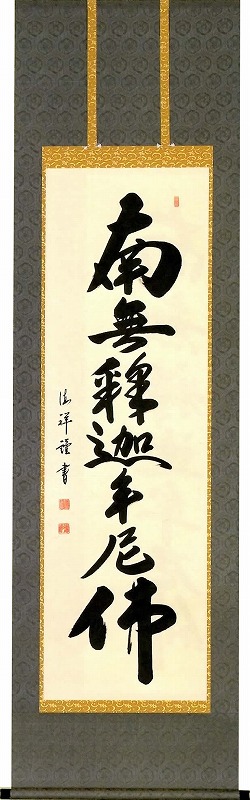 南無釋迦牟尼佛
祥謹書